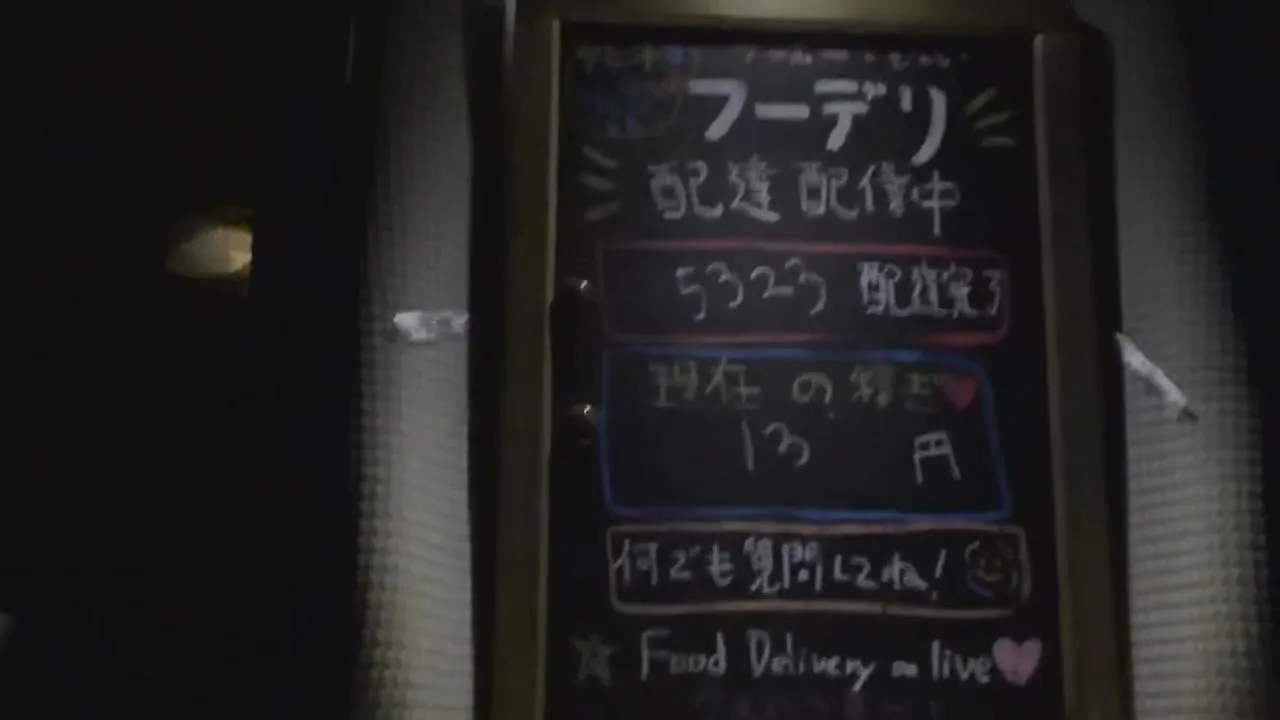 フーデリ
配達配信中
5323 配達完了
現在の稼ぎ
13 円
何でも質問してね!
Food Delivery on live